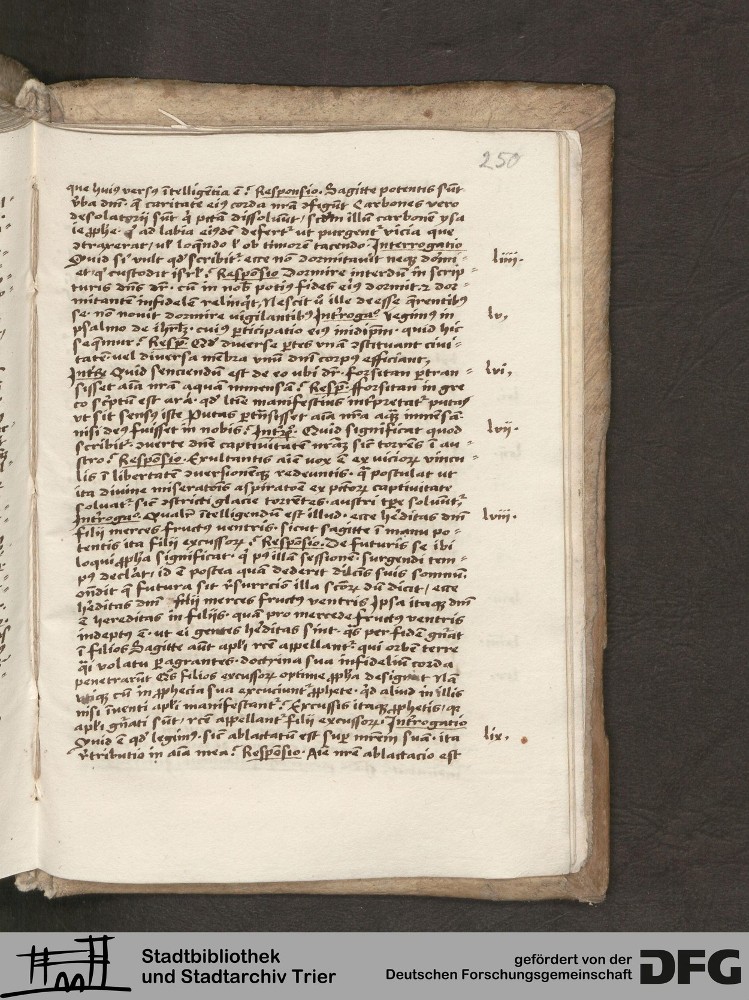 250
que huiꝰ versꝰ ītelligētia ē? Responsio. Sagitte potentis sūt
v̄ba dn̄i. q̄ caritate eiꝰ corda nr̄a ꝯfigūt Carbones vero
desolatorij sūt q̇ pctā dissoluūt, scdm illam carbonē ysa
ie ꝓphe. q̇ ad labia eiusdē defert᷑ ut purgent vicia que
ꝯtraxerat, ul̓ loquēdo l̓ ob timorē tacendo Interrogatio
Quid si vult qd̓ scribit᷑. ecce nō dormitauit neqꝫ dormi-
et, q̇ custodit isrl̓? Responsio Dormire interdū in scrip-
turis dn̄s dr̄. cū in nob̄ potiꝰ fides eiꝰ dormit. ⁊ dor-
mitantē infidelem relinq̇t, Nescit ū ille deesse q̄rentibꝰ
se. nō nouit dormire vigilantibꝰ Int̄rogaꝰ legimꝰ in
psalmo de ihrl̓ꝫ. cuiꝰ ꝑticipatio eiꝰ inidip̄m. quid hic
seq̄mur? Resp̄ Qd̓ diuerse ꝑtes vnā ꝯstituant ciui-
tatē vel diuersa mēbra vnū dn̄i corpꝰ efficiant,
Int̄rꝫ Quid senciendū est de eo ubi dr̄. forsitan ꝑtran-
sisset aīa nr̄a aquā immensā? Resp̄. fforsitan in gre
co sc̄ptū est ara. qd̓ ltīe manifestius int̓pretat᷑ putas
vt sit sensꝰ iste Putas ꝑtnsisset aīa nr̄a aq̄ꝫ immēsā.
nisi deꝰ fuisset in nobis? Int̄rꝫ. Quid significat quod
scribit᷑. ꝯuerte dn̄e captiuitatē nr̄aꝫ sic̄ torrēs ī au-
stro? Respōsio. Exultantis aīe vox ē ex vicioꝝ vincu-
lis ī libertatē ꝯuersionēqꝫ redeuntis. q̄ postulat ut
ita diuine miseratoīs aspiratoē ex pctoꝝ captiuitate
soluat᷑. sic̄ ꝯstricti glacie torrētes. austri tꝑe soluūt᷑,
Int̄rogaꝰ. Qualr̄ ītelligendū est illud. ecce h̄ditas dn̄i
filij merces fructꝰ ventris. sicut sagitte ī manu po-
tentis ita filij excussoꝝ? Responsio. De futuris se ibi
loqui ꝓpha significat. q̇ pꝰ illā sessionē surgendi tem-
pꝰ declar̄t. id ē postea quā dederit dilc̄is suis somnū.
on̄dit q̄ futura sit r̄surrcio illa sc̄oꝝ dū dicit, ecce
h̄ditas dn̄i filij merces fructꝰ ventris Ipsa itaqꝫ dn̄i
ē hereditas in filijs. quā pro mercede fructꝰ ventris
indeptꝰ ē. ut ei gentes h̄ditas sint. q̄s per fidē gn̄at
ī filios Sagitte aūt apl̓i rc̄e appellant᷑ qui orbē terre
q̄i volatu ꝑagrantes. doctrina sua infideliū corda
penetrarūt Qd̓s filios excussoꝝ optime ꝓpha designat Nā
vtiqꝫ cū in ꝓphecia sua excuciunt᷑ ꝓphete. qd̓ aliud in illis
nisi īuenti apl̓i manifestant᷑? Excussis itaqꝫ ꝓphetis, qꝫ
apl̓i gn̄ati sūt, rc̄e appellant᷑ filij excussoꝝ. Int̄rogatio
Quid ē qd̓ legimꝰ. sic̄ ablactatū est suꝑ mr̄em suā. ita
r̄tributio in aīa mea? Respōsio. Aīe nr̄e ablactacio est
liiij.
lv,
lvi,
lvij.
lviij.
lix,
Stadtbibliothek
und Stadtarchiv Trier
gefördert von der
Deutschen Forschungsgemeinschaft
DFG